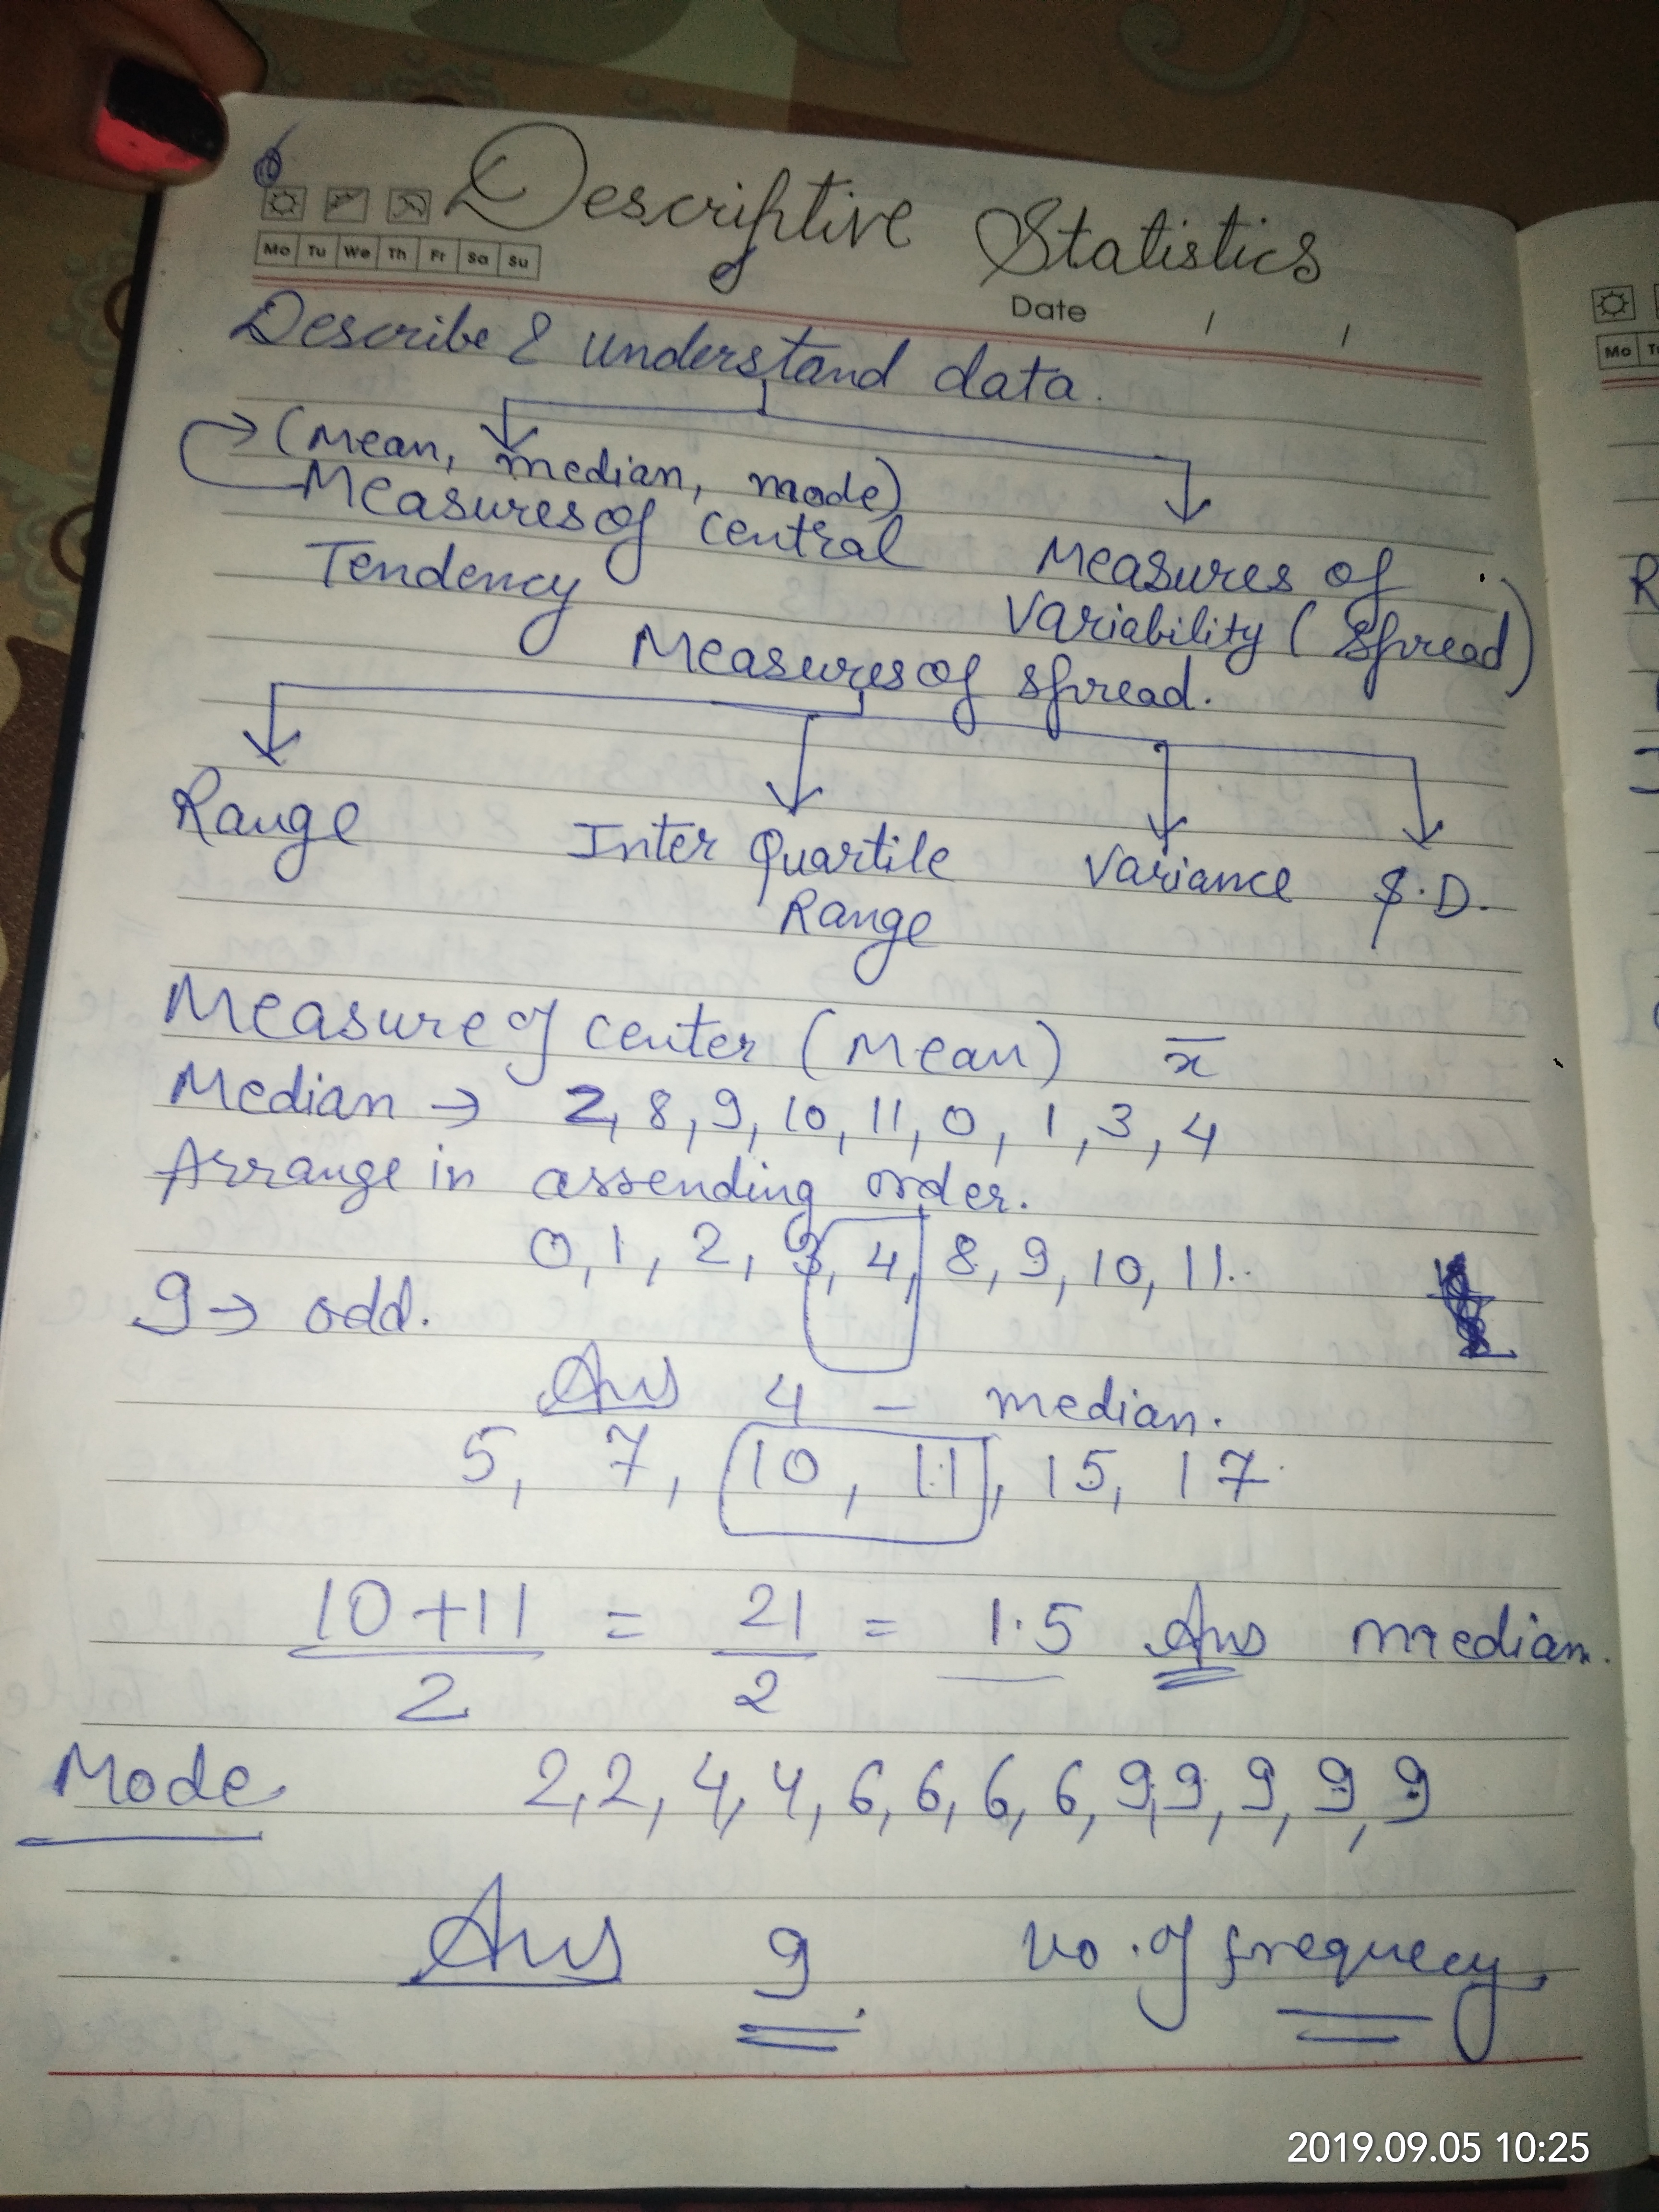 Descriptive Statistics
Mo Tu We Th Fr Sa Su
Date / /
Describe & understand data.
(Mean, median, mode)
Measures of central Tendency
Measures of Variability (Spread)
Measures of spread.
Range
Inter Quartile Range
Variance
S.D.
Measure of center (Mean) x̄
Median → 2, 8, 9, 10, 11, 0, 1, 3, 4
Arrange in assending order.
0, 1, 2, 3, 4, 8, 9, 10, 11.
9 → odd.
Ans 4 – median.
5, 7, 10, 11, 15, 17
10+11/2 = 21/2 = 1.5 Ans median.
Mode 2,2, 4,4, 6, 6, 6, 6, 9,9, 9, 9, 9
Ans 9 no. of frequecy
2019.09.05 10:25
Mo